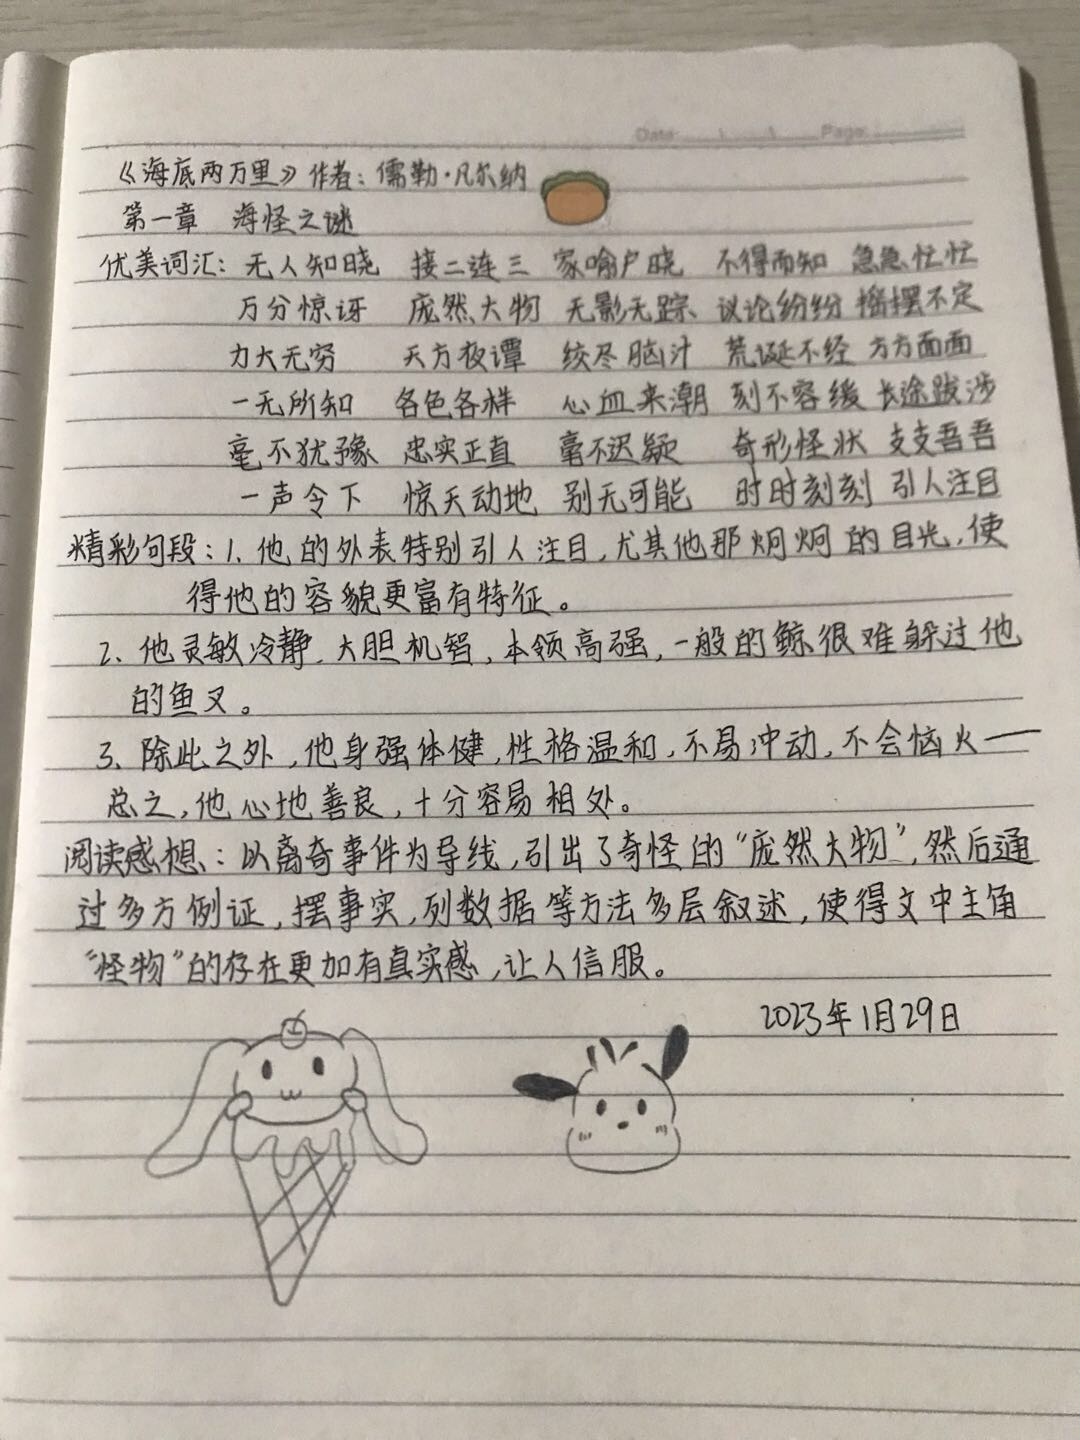 Date: Page:
《海底两万里》作者：儒勒·凡尔纳
第一章 海怪之谜
优美词汇：无人知晓 接二连三 家喻户晓 不得而知 急急忙忙
万分惊讶 庞然大物 无影无踪 议论纷纷 摇摆不定
力大无穷 天方夜谭 绞尽脑汁 荒诞不经 方方面面
一无所知 各色各样 心血来潮 刻不容缓 长途跋涉
毫不犹豫 忠实正直 毫不迟疑 奇形怪状 支支吾吾
一声令下 惊天动地 别无可能 时时刻刻 引人注目
精彩句段：1、他的外表特别引人注目，尤其他那炯炯的目光，使
得他的容貌更富有特征。
2、他灵敏冷静、大胆机智，本领高强，一般的鲸很难躲过他
的鱼叉。
3、除此之外，他身强体健，性格温和，不易冲动，不会恼火——
总之，他心地善良，十分容易相处。
阅读感想：以离奇事件为导线，引出了奇怪的“庞然大物”，然后通
过多方例证，摆事实，列数据等方法多层叙述，使得文中主角
“怪物”的存在更加有真实感，让人信服。
2023年1月29日